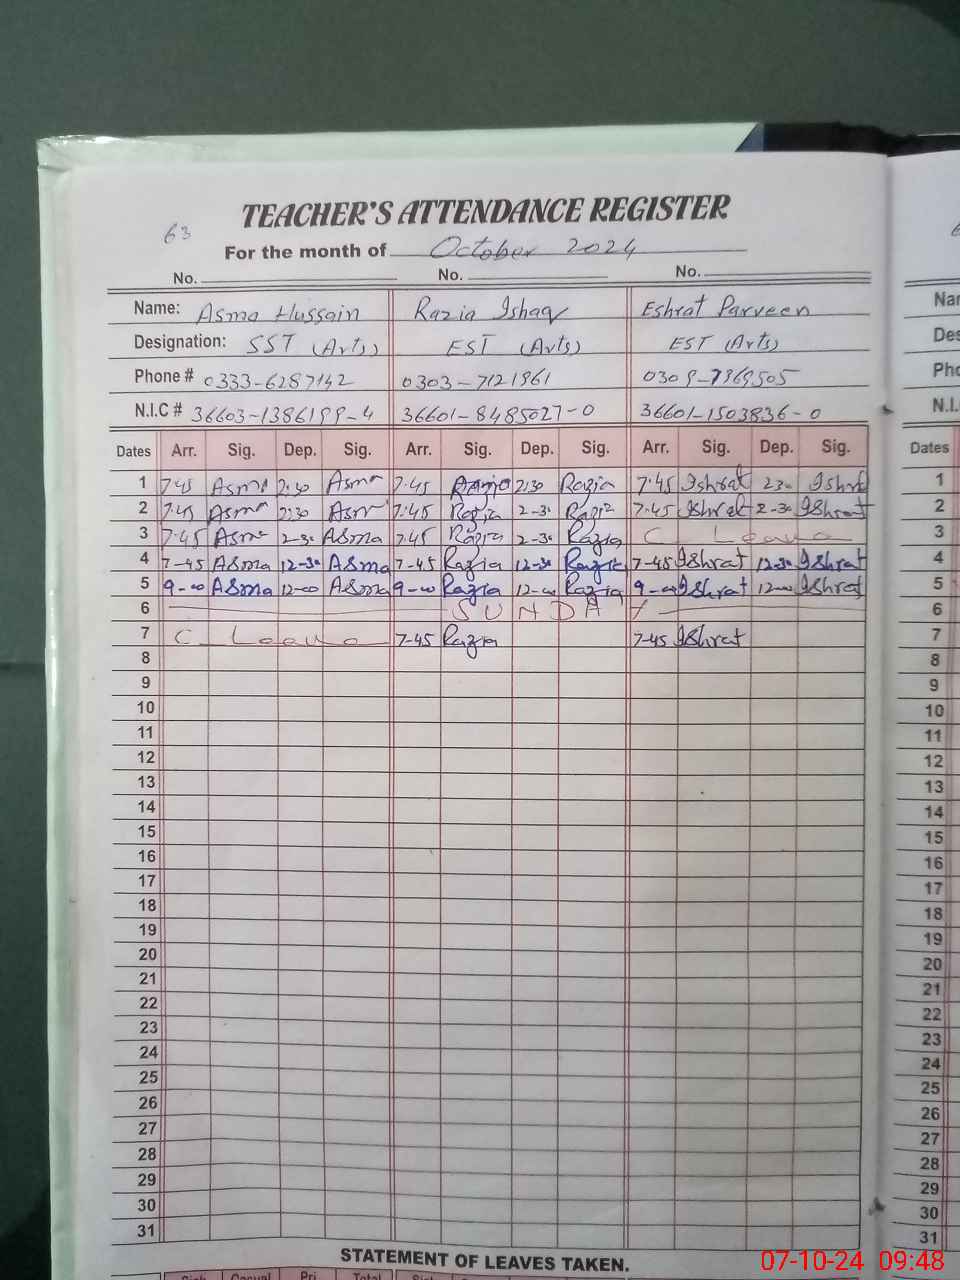 TEACHER'S ATTENDANCE REGISTER
63
For the month of October 2024
No. No. No.
Name: Asma Hussain Razia Ishaq Eshrat Parveen
Designation: SST (Arts) EST (Arts) EST (Arts)
Phone # 0333-6287142 0303-7121961
N.I.C # 36603-1386199-4 36601-8485027-0 36601-1503836-0
Dates Arr. Sig. Dep. Sig. Arr. Sig. Dep. Sig. Arr. Sig. Dep. Sig.
1 7:45 Asma 2:30 Asma 7:45 Razia 2:30 Razia 7:45 Ishrat 2 30 Ishrat
2 7:45 Asma 2:30 Asma 7:45 Razia 2-30 Razia 7:45 Ishrat 2-30 Ishrat
3 7:45 Asma 2-30 Asma 7:45 Razia 2-30 Razia C. Leave
4 7-45 Asma 12-30 Asma 7-45 Razia 12-30 Razia 7-45 Ishrat 12-30 Ishrat
5 9-00 Asma 12-00 Asma 9-00 Razia 12-00 Razia 9-00 Ishrat 12-00 Ishrat
6 SUNDAY
7 C. Leave 7-45 Razia 7-45 Ishrat
8
9
10
11
12
13
14
15
16
17
18
19
20
21
22
23
24
25
26
27
28
29
30
31
STATEMENT OF LEAVES TAKEN.
Casual Pri. Total
Dates
1
2
3
4
5
6
7
8
9
10
11
12
13
14
15
16
17
18
19
20
21
22
23
24
25
26
27
28
29
30
31
07-10-24 09:48